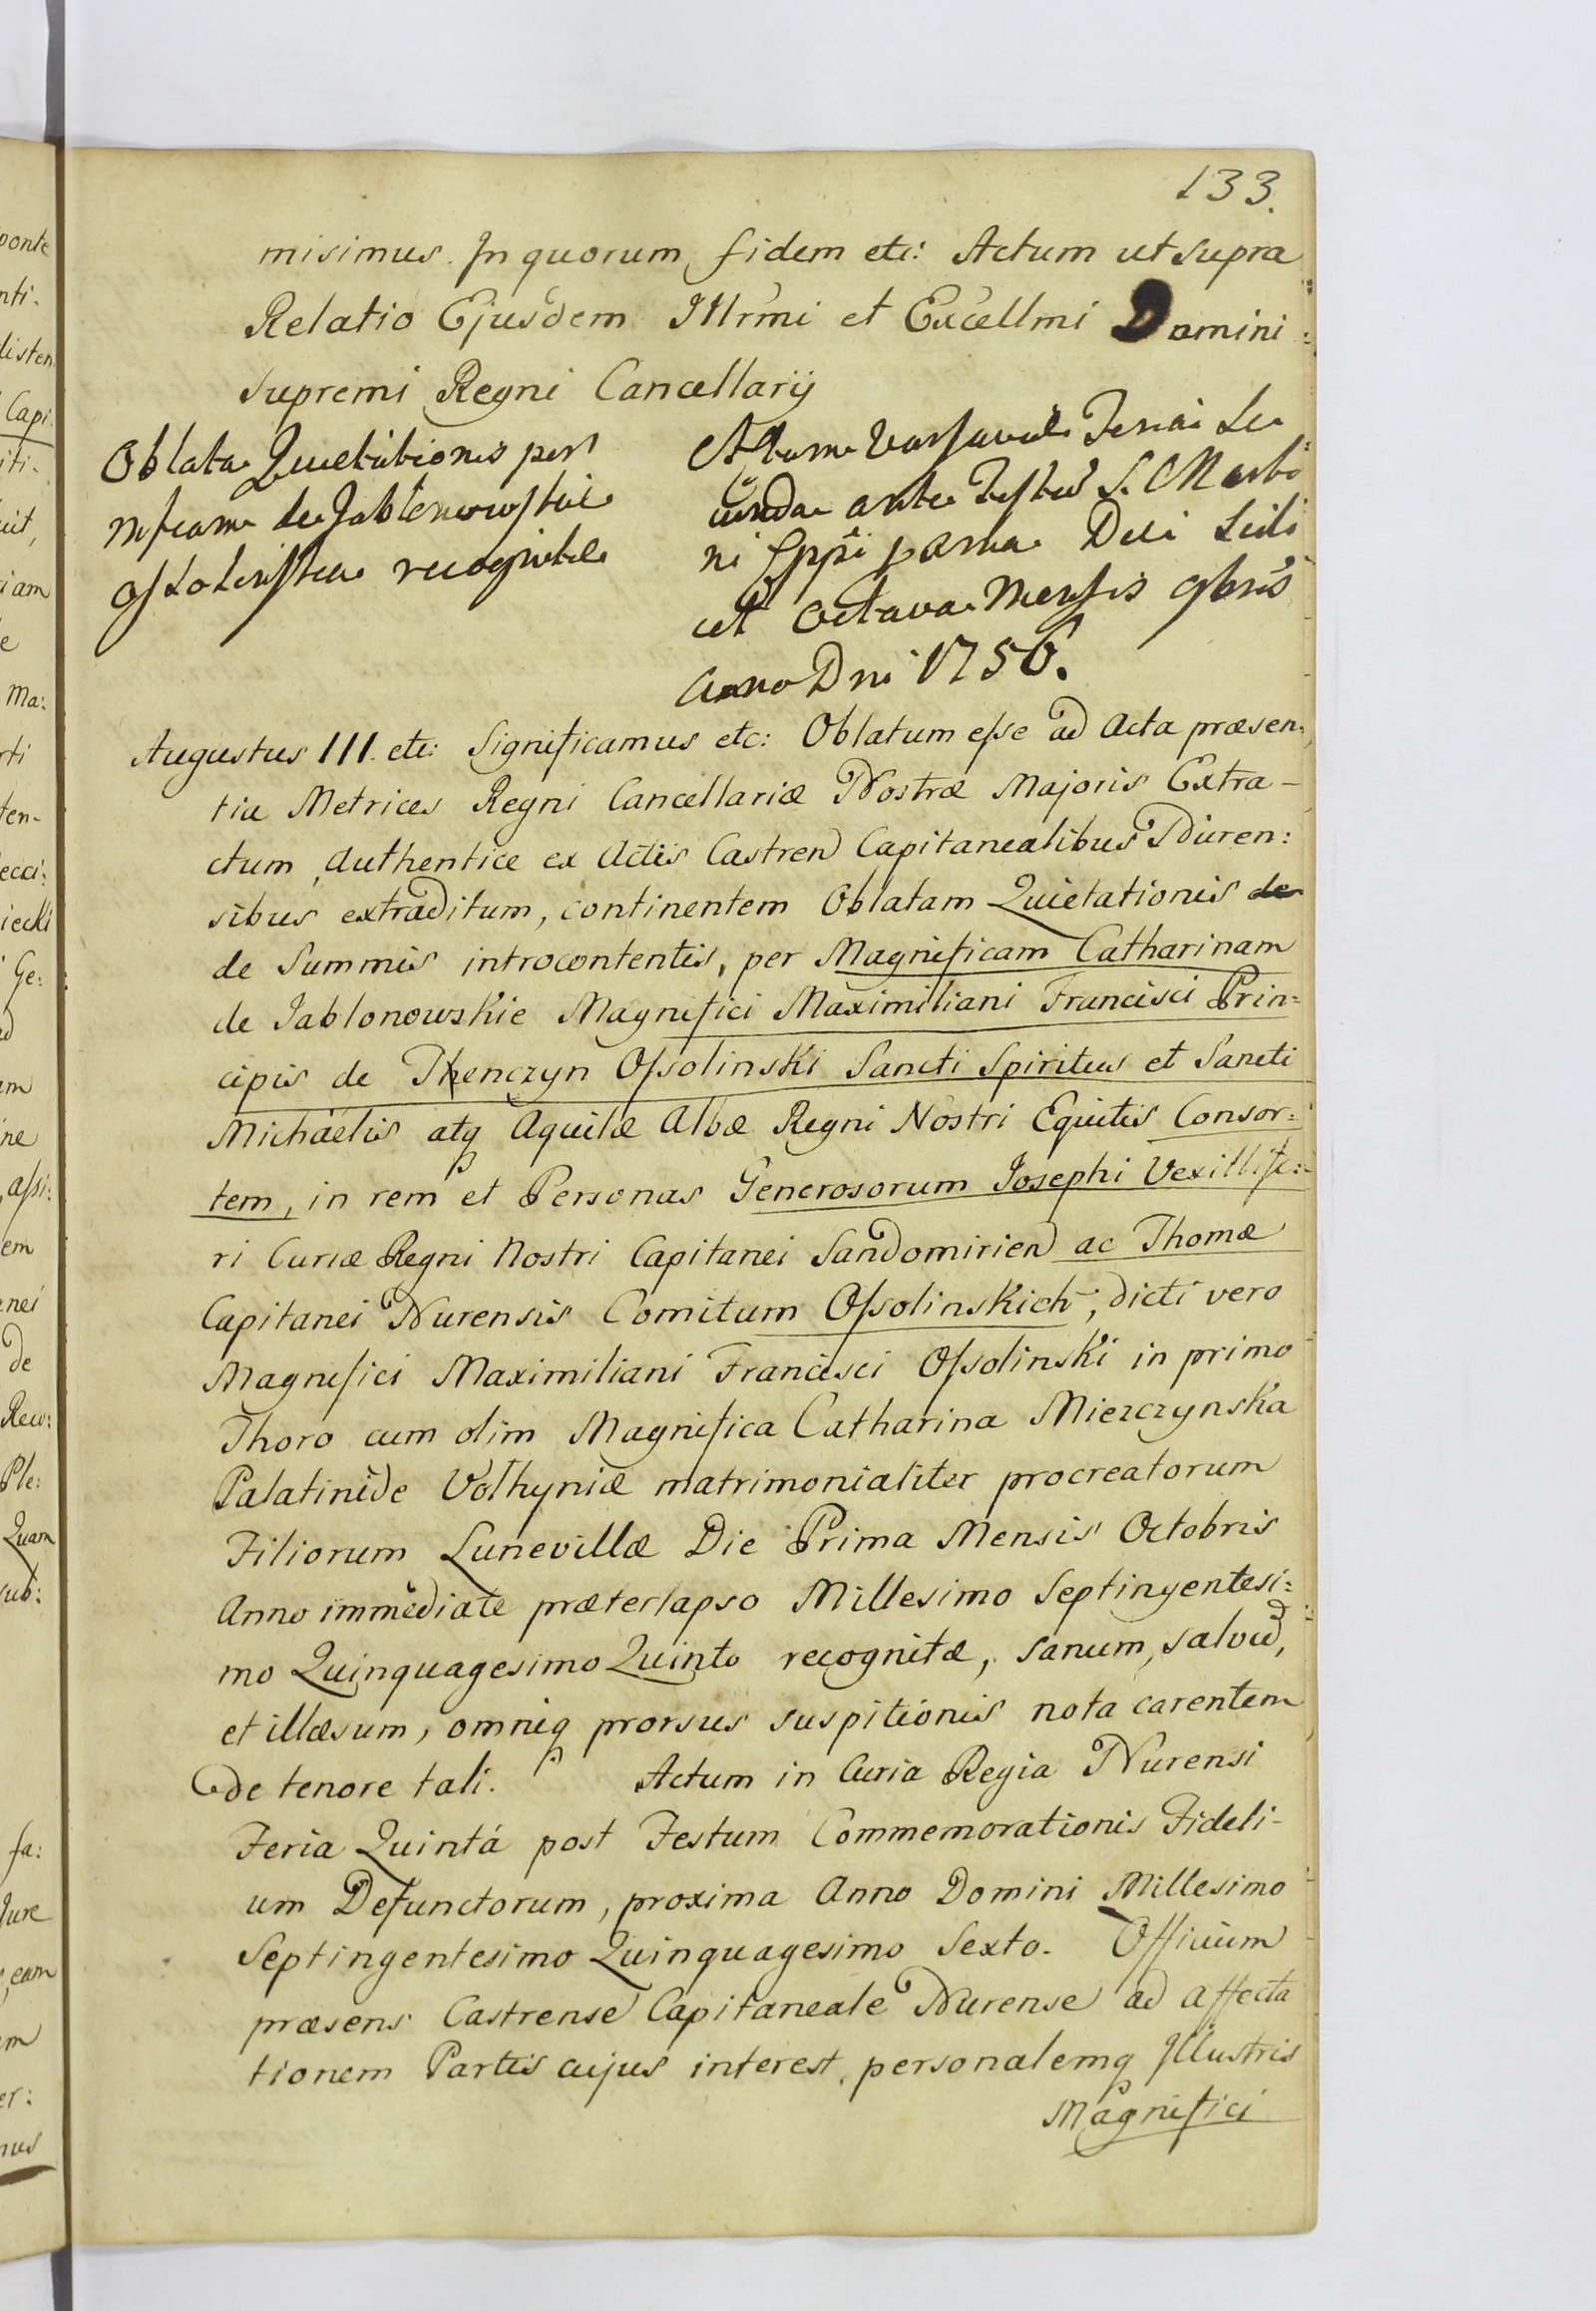 133.
misimus. In quorum fidem etc: Actum ut supra
Relatio Ejusdem Illrmi et Excellmi Domini
Supremi Regni Cancellarij
Oblata Quietationis per
Mficam de Jablonowskie
Ossolinska recognitae
Actum Varsaviae Feria Se
cunda ante Festum S. Marti
ni Eppi proxima Die scili
cet Octava Mensis 9bris
Anno Dni 1756.
Augustus III. etc: Significamus etc: Oblatum esse ad Acta præsen:
tia Metrices Regni Cancellariæ Nostræ Majoris Extra-
ctum, Authentice ex Actis Castren Capitanealibus Nuren:
sibus extraditum, continentem Oblatam Quietationis de
de Summis introcontentis, per Magnificam Catharinam
de Jablonowskie Magnifici Maximiliani Francisci Prin:
cipis de Thenczyn Ossolinski Sancti Spiritus et Sancti
Michaëlis atq Aquilæ Albæ Regni Nostri Equitis Consor:
tem, in rem et Personas Generosorum Josephi Vexillife:
ri Curiæ Regni Nostri Capitanei Sandomirien ac Thomæ
Capitanei Nurensis Comitum Ossolinskich, dicti vero
Magnifici Maximiliani Francisci Ossolinski in primo
Thoro cum olim Magnifica Catharina Miezczynska
Palatinide Volhyniæ matrimonialiter procreatorum
Filiorum Lunevillæ Die Prima Mensis Octobris
Anno immediate præterlapso Millesimo Septingentesi:
mo Quinquagesimo Quinto recognitæ, sanum, salvu,
et illæsum, omniq prorsus suspitionis nota carentem
de tenore tali. Actum in Curia Regia Nurensi
Feria Quintá post Festum Commemorationis Fideli-
um Defunctorum, proxima Anno Domini Millesimo
Septingentesimo Quinquagesimo Sexto. Officium
præsens Castrense Capitaneale Nurense ad affecta
tionem Partis cujus interest, personalemq Illustris
Magnifici